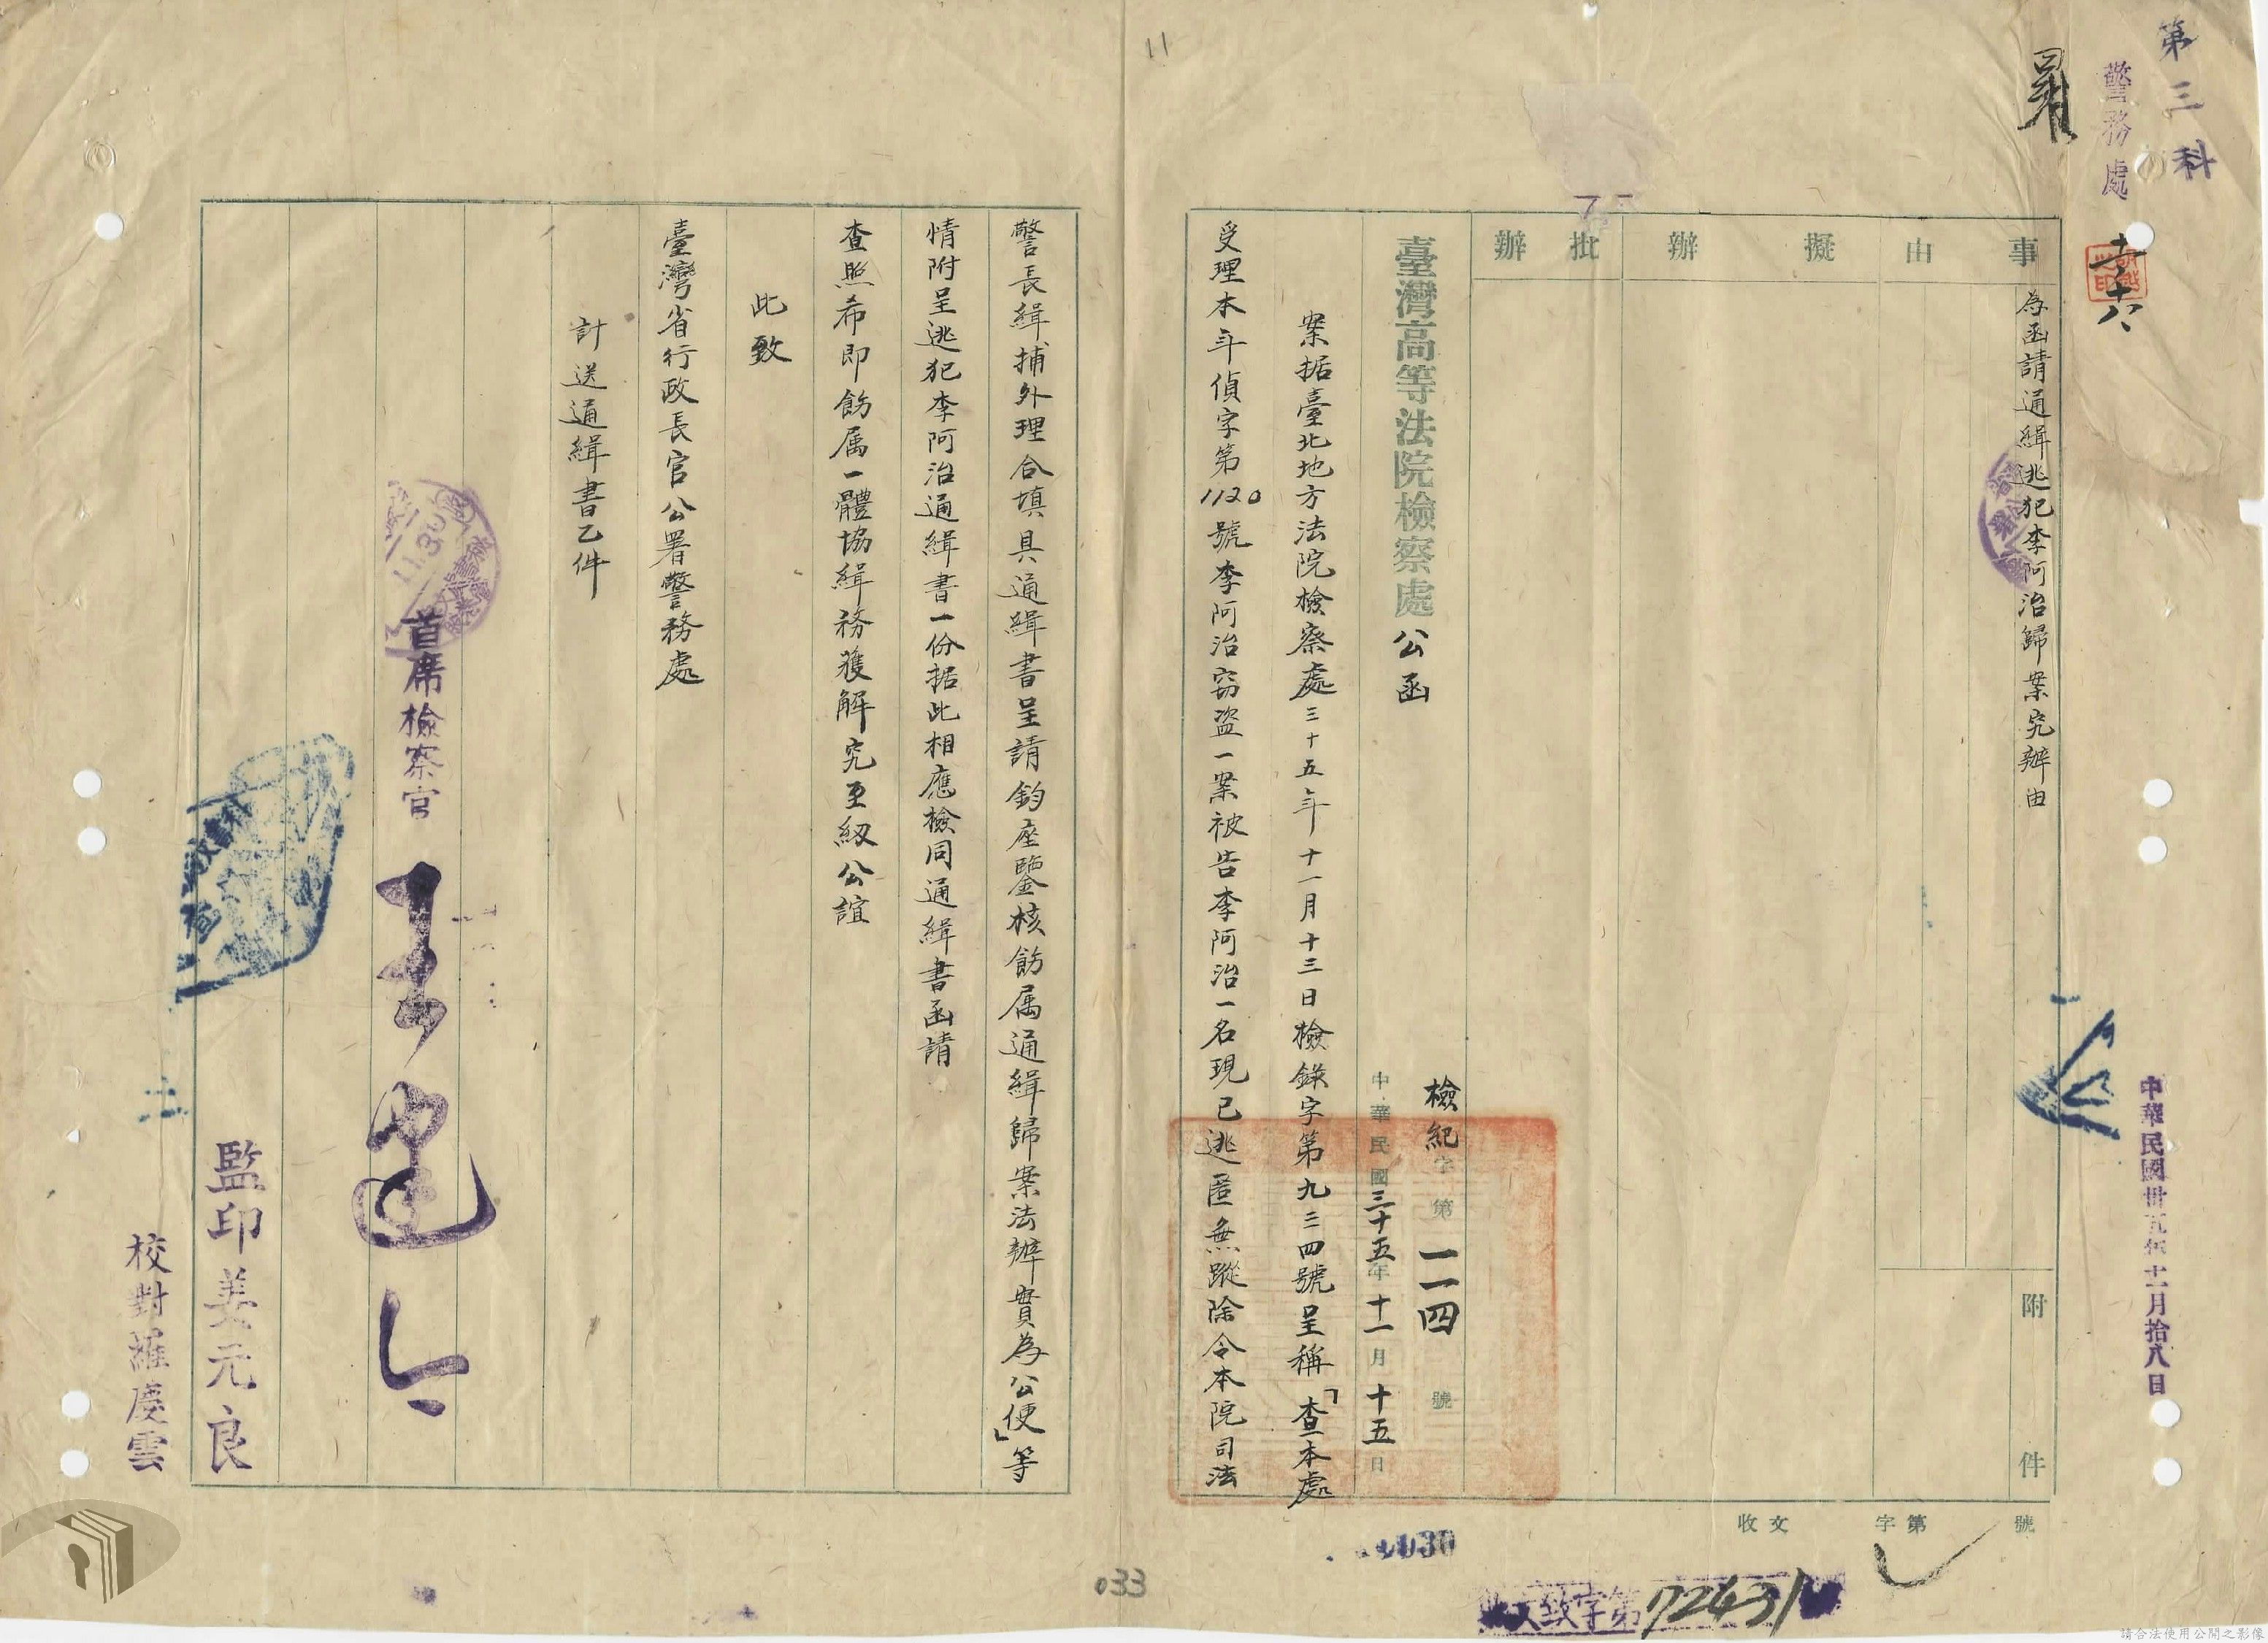 第三科
警務處
事由
為函請通緝逃犯李阿治歸案究辦由
附件
擬辦
批辦
臺灣高等法院檢察處公函
檢紀字第一一四號
中華民國三十五年十一月十五日
案据臺北地方法院檢察處三十五年十一月十三日檢錄字第九三四號呈稱「查本處
受理本年偵字第1120號李阿治竊盜一案被告李阿治一名現已逃匿無蹤除令本院司法
警長緝捕外理合填具通緝書呈請鈞座鑒核飭属通緝歸案法辦實為公便」等
情附呈逃犯李阿治通緝書一份据此相應檢同通緝書函請
查照希即飭属一體協緝務獲解究至級公誼
此致
臺灣省行政長官公署警務處
計送通緝書乙件
首席檢察官
監印姜元良
校對羅慶雲
中華民國卅五年十一月拾八日
收文 字第 號
致字第72431
033
11
請合法使用公開之影像